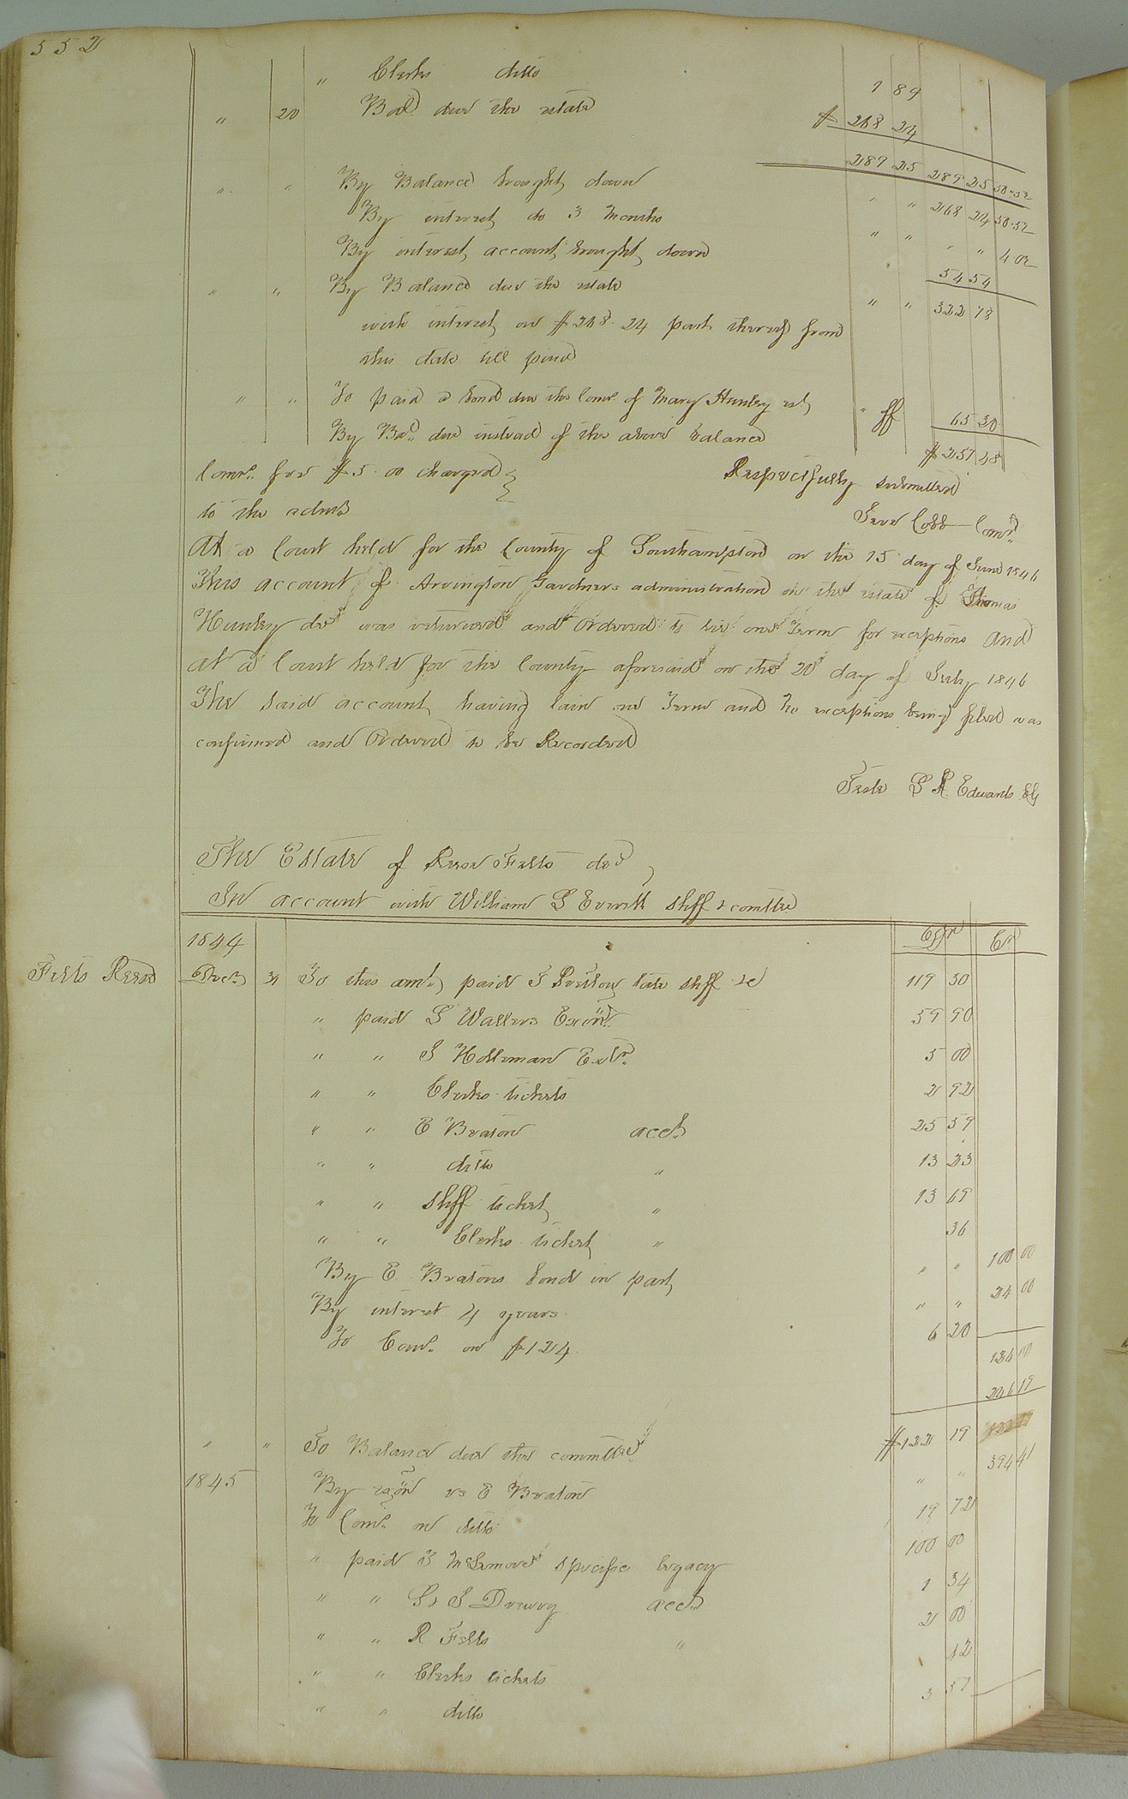 552
" Clerks ditto 1 89
" 20 Bal due the estate $ 268 24
287 25 287 25 50.52
" " By Balance brought down " " 268 24 50.52
By interest do 3 Months " " " " 4 02
By interest account brought down 54 54
" " By Balance due the estate " " 322 78
with interest on $268.24 part thereof from
this date till paid
" " To paid a bond due the Comr of Mary Hunley est " 65 30
By Bal. due instead of the above balance $ 257 48
Comr. fee $5.00 charged
to the admr
Respectfully submitted
Jere Cobb Comr
At a Court held for the County of Southampton on the 15 day of June 1846
This account of Arvington Gardners administration on the estate of Thomas
Hunley decd was returned and Ordered to lie one Term for exceptions And
at a Court held for the County aforesaid on the 20 day of July 1846
The said account having lain one Term and no exceptions being filed was
confirmed and Ordered to be Recorded
Teste L R Edwards Clk
The Estate of Reese Felts decd
In account with William L Everitt shff & comttee
1844 Dr Cr
Felts Reese
Decr 31 To this amt. paid late shff &c 119 30
" paid L Wallers Exon. 59 90
" " S Holleman Exr. 5 00
" " Clerks tickets 2 92
" " E Braton acct 25 59
" " ditto " 13 23
" " Shff ticket " 13 69
" " Clerks ticket " 36
By E Bratons bond in part " " 100 00
By interest 4 years " " 24 00
To Com. on $124 6 20
124 00
246 19
" " To Balance due the committee $122 19
1845 By exon vs E Braton " " 394 41
To Com. on ditto 19 72
" paid specific legacy 100 00
" " S Drewry acct 1 34
" " R Felts " 2 00
" " Clerks tickets 12
" " ditto 3 57